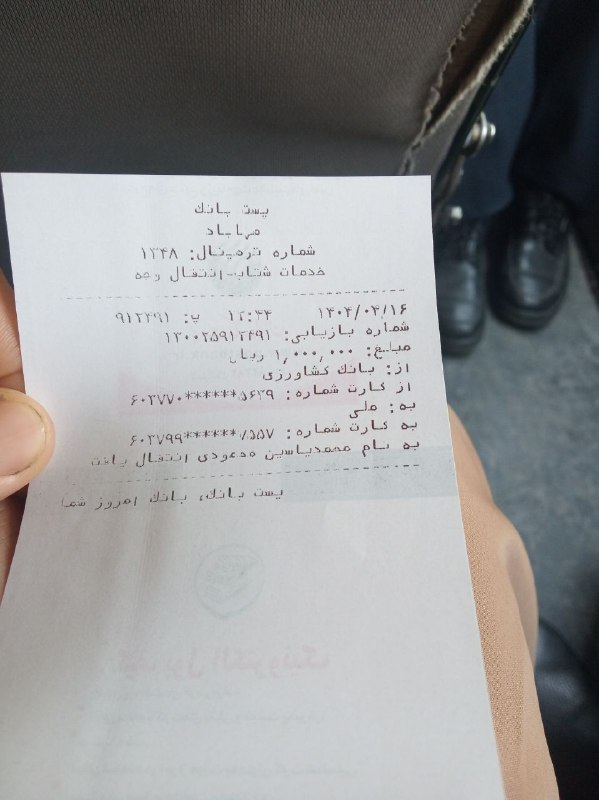 پست بانک
مهاباد
شماره ترمینال: ۱۳۴۸
خدمات شتاب-انتقال وجه
۱۴۰۴/۰۴/۱۶ ۱۲:۴۴ پ: ۹۱۲۴۹۱
شماره بازیابی: ۱۲۰۰۲۵۹۱۲۴۹۱
مبلغ: ۱,۰۰۰,۰۰۰ ریال
از: بانک کشاورزی
از کارت شماره: ۵۶۲۹******۶۰۳۷۷۰
به: ملی
به کارت شماره: ۷۵۵۷******۶۰۳۷۹۹
به نام محمدیاسین انتقال یافت
پست بانک، بانک امروز شما